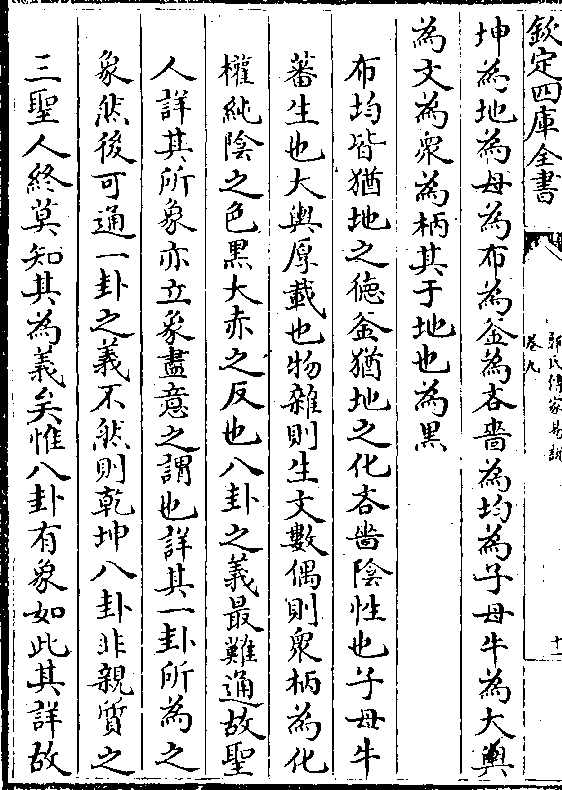 欽定四庫全書
郭氏傳家易說
卷九
十一
坤為地為母為布為釜為吝嗇為均為子母牛為大輿
為文為衆為柄其于地也為黒
布均皆猶地之德釜猶地之化吝嗇陰性也子母牛
蕃生也大輿厚載也物雜則生文數偶則衆柄為化
權純陰之色黒大亦之反也八卦之義最難通故聖
人詳其所象亦立象盡意之謂也詳其一卦所為之
象然後可通一卦之義不然則乾坤八卦非親質之
三聖人終莫知其為義矣惟八卦有象如此其詳故